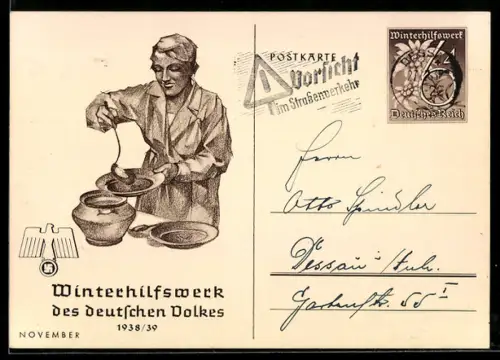 Winterhilfswerk
des deutschen Volkes
1938/39
NOVEMBER
POSTKARTE
Vorsicht
im Straßenverkehr
Winterhilfswerk
6+4
Deutsches Reich
Herrn
Otto Spindler
Dessau / Anh.
Gartenstr. 55 I